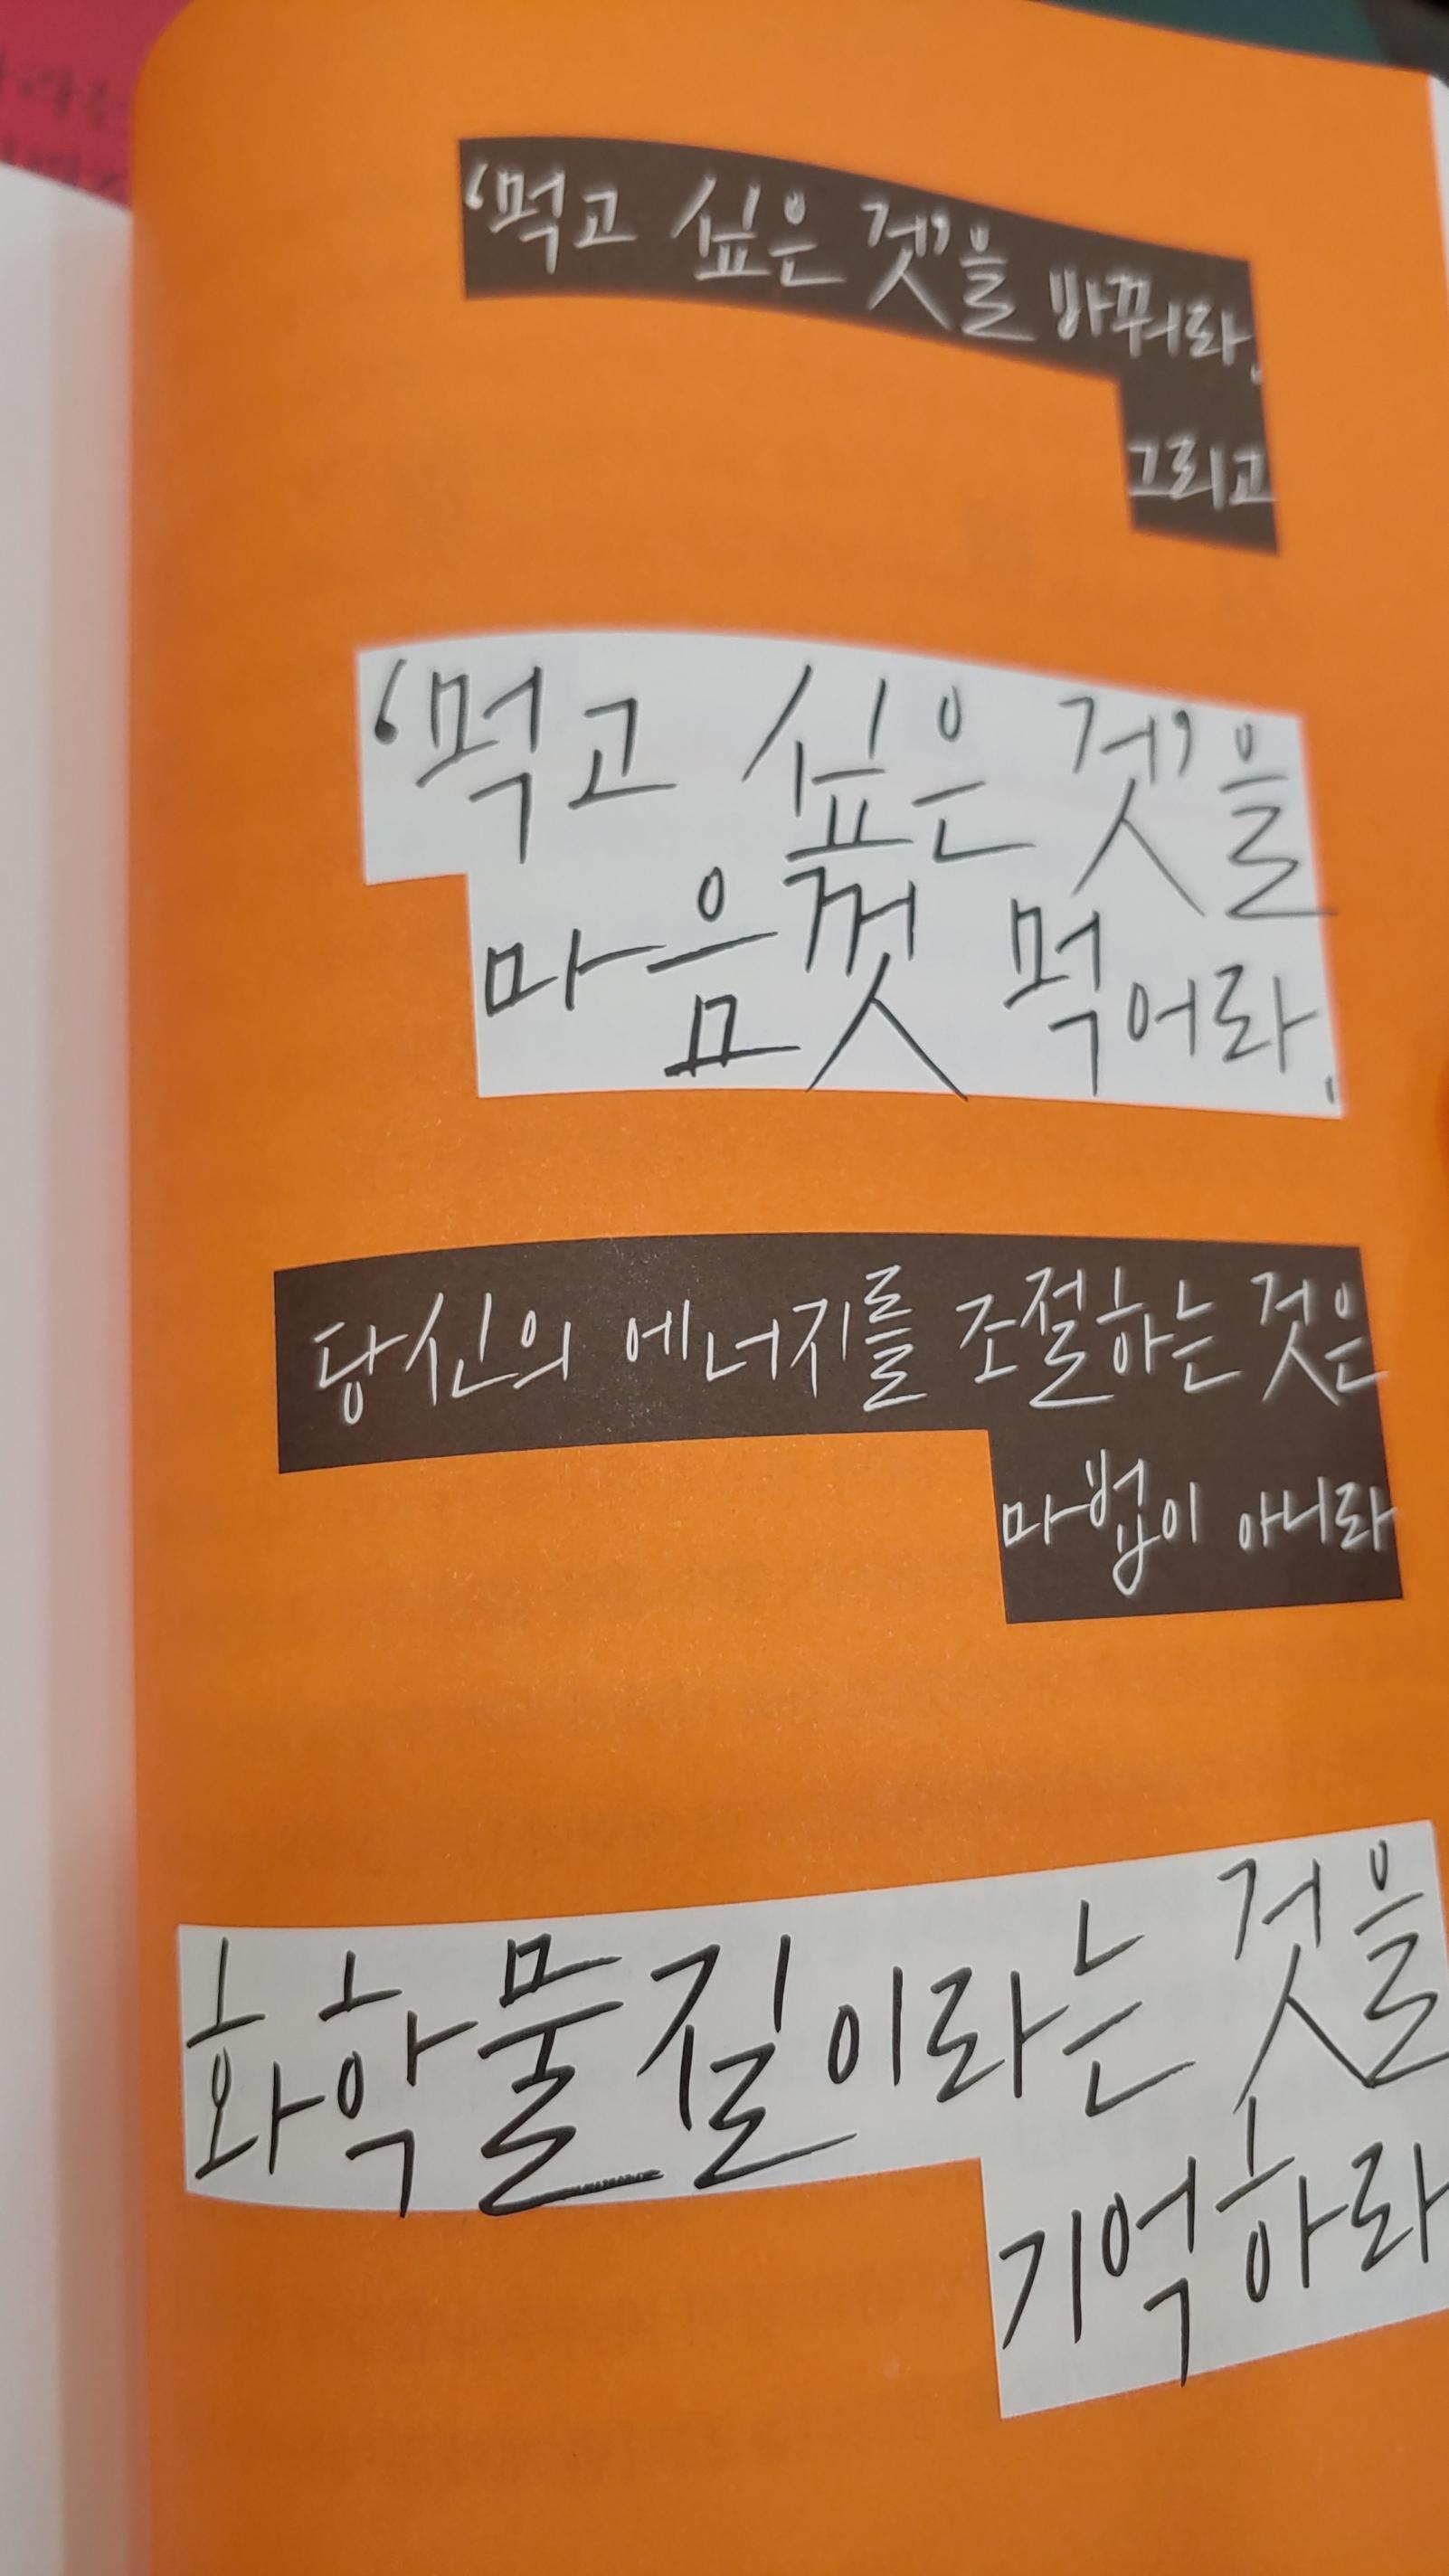 '먹고 싶은 것'을 바꿔라.
그리고
'먹고 싶은 것'을
마음껏 먹어라.
당신의 에너지를 조절하는 것은
마법이 아니라
화학물질이라는 것을
기억하라